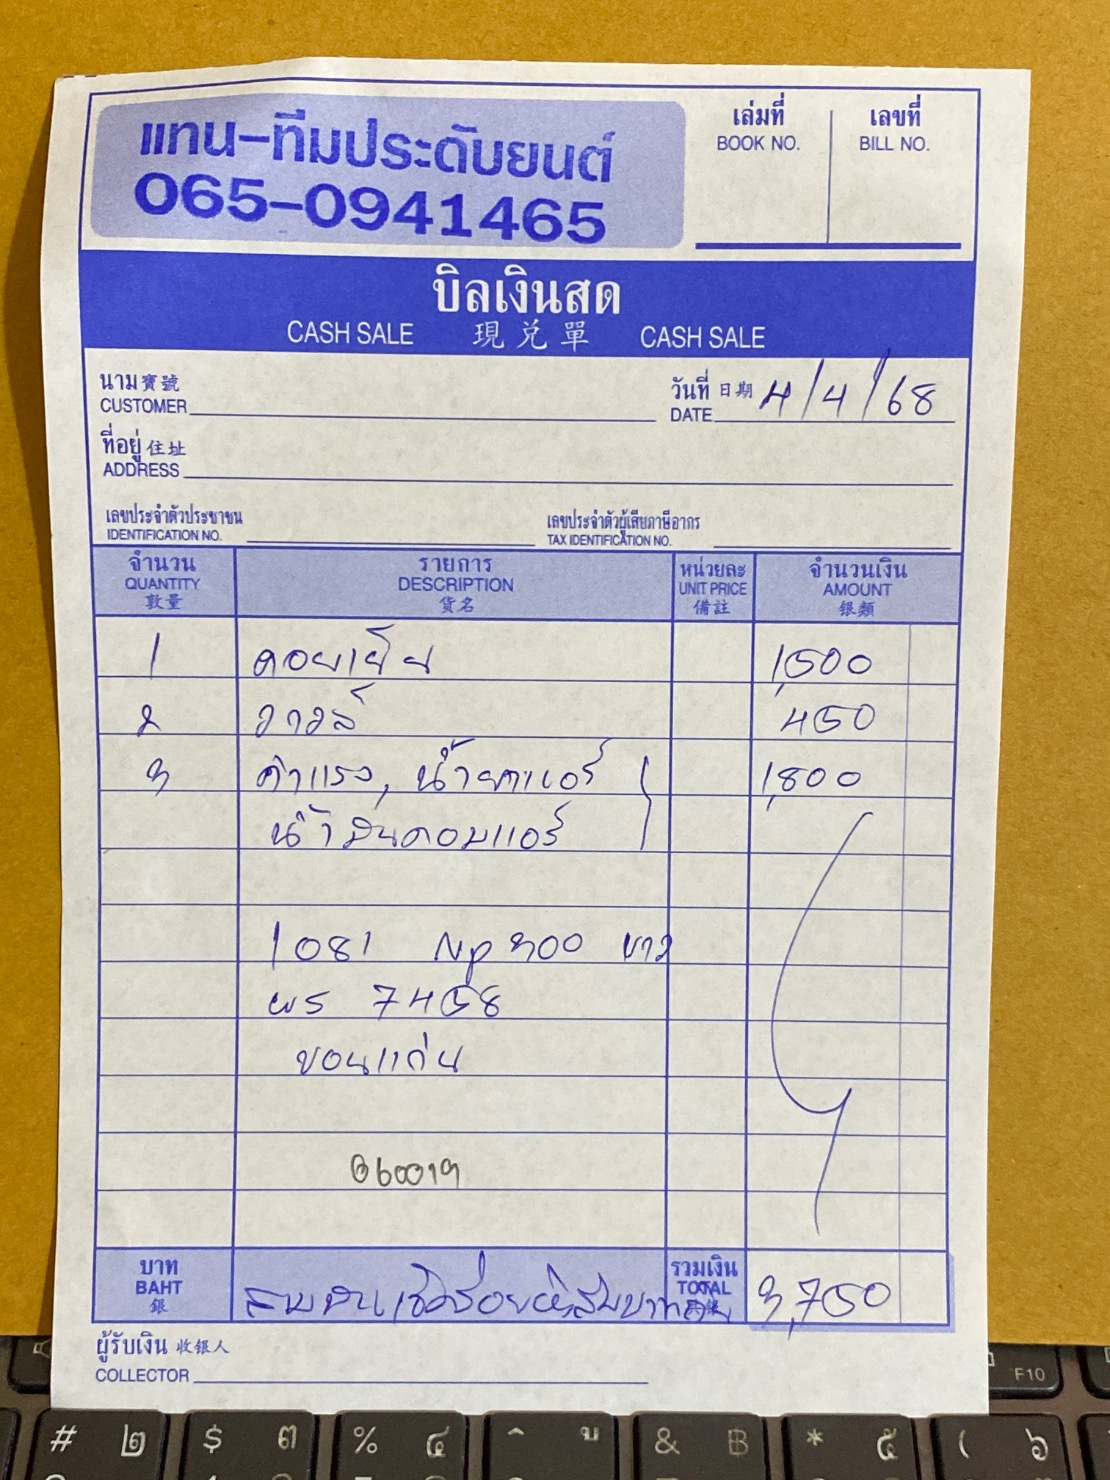 แทน-ทีมประดับยนต์
065-0941465
เล่มที่ เลขที่
BOOK NO. BILL NO.
บิลเงินสด
CASH SALE 現兌單 CASH SALE
นาม 寶號 วันที่ 日期 4/4/68
CUSTOMER DATE
ที่อยู่ 住址
ADDRESS
เลขประจำตัวประชาชน เลขประจำตัวผู้เสียภาษีอากร
IDENTIFICATION NO. TAX IDENTIFICATION NO.
จำนวน รายการ หน่วยละ จำนวนเงิน
QUANTITY DESCRIPTION UNIT PRICE AMOUNT
貨名 備註
1 คอยเย็น 1,500
2 วาวล์ 450
3 ค่าแรง, น้ำยาแอร์ 1,800
น้ำมันคอมแอร์
1081 Np 300 ขาว
ผร 7458
ขอนแก่น
บาท รวมเงิน
BAHT TOTAL 3,750
銀
ผู้รับเงิน 收銀人
COLLECTOR
F10
# ๒ $ ๓ % ๔ ^ & ฿ * ๕ ( ๖